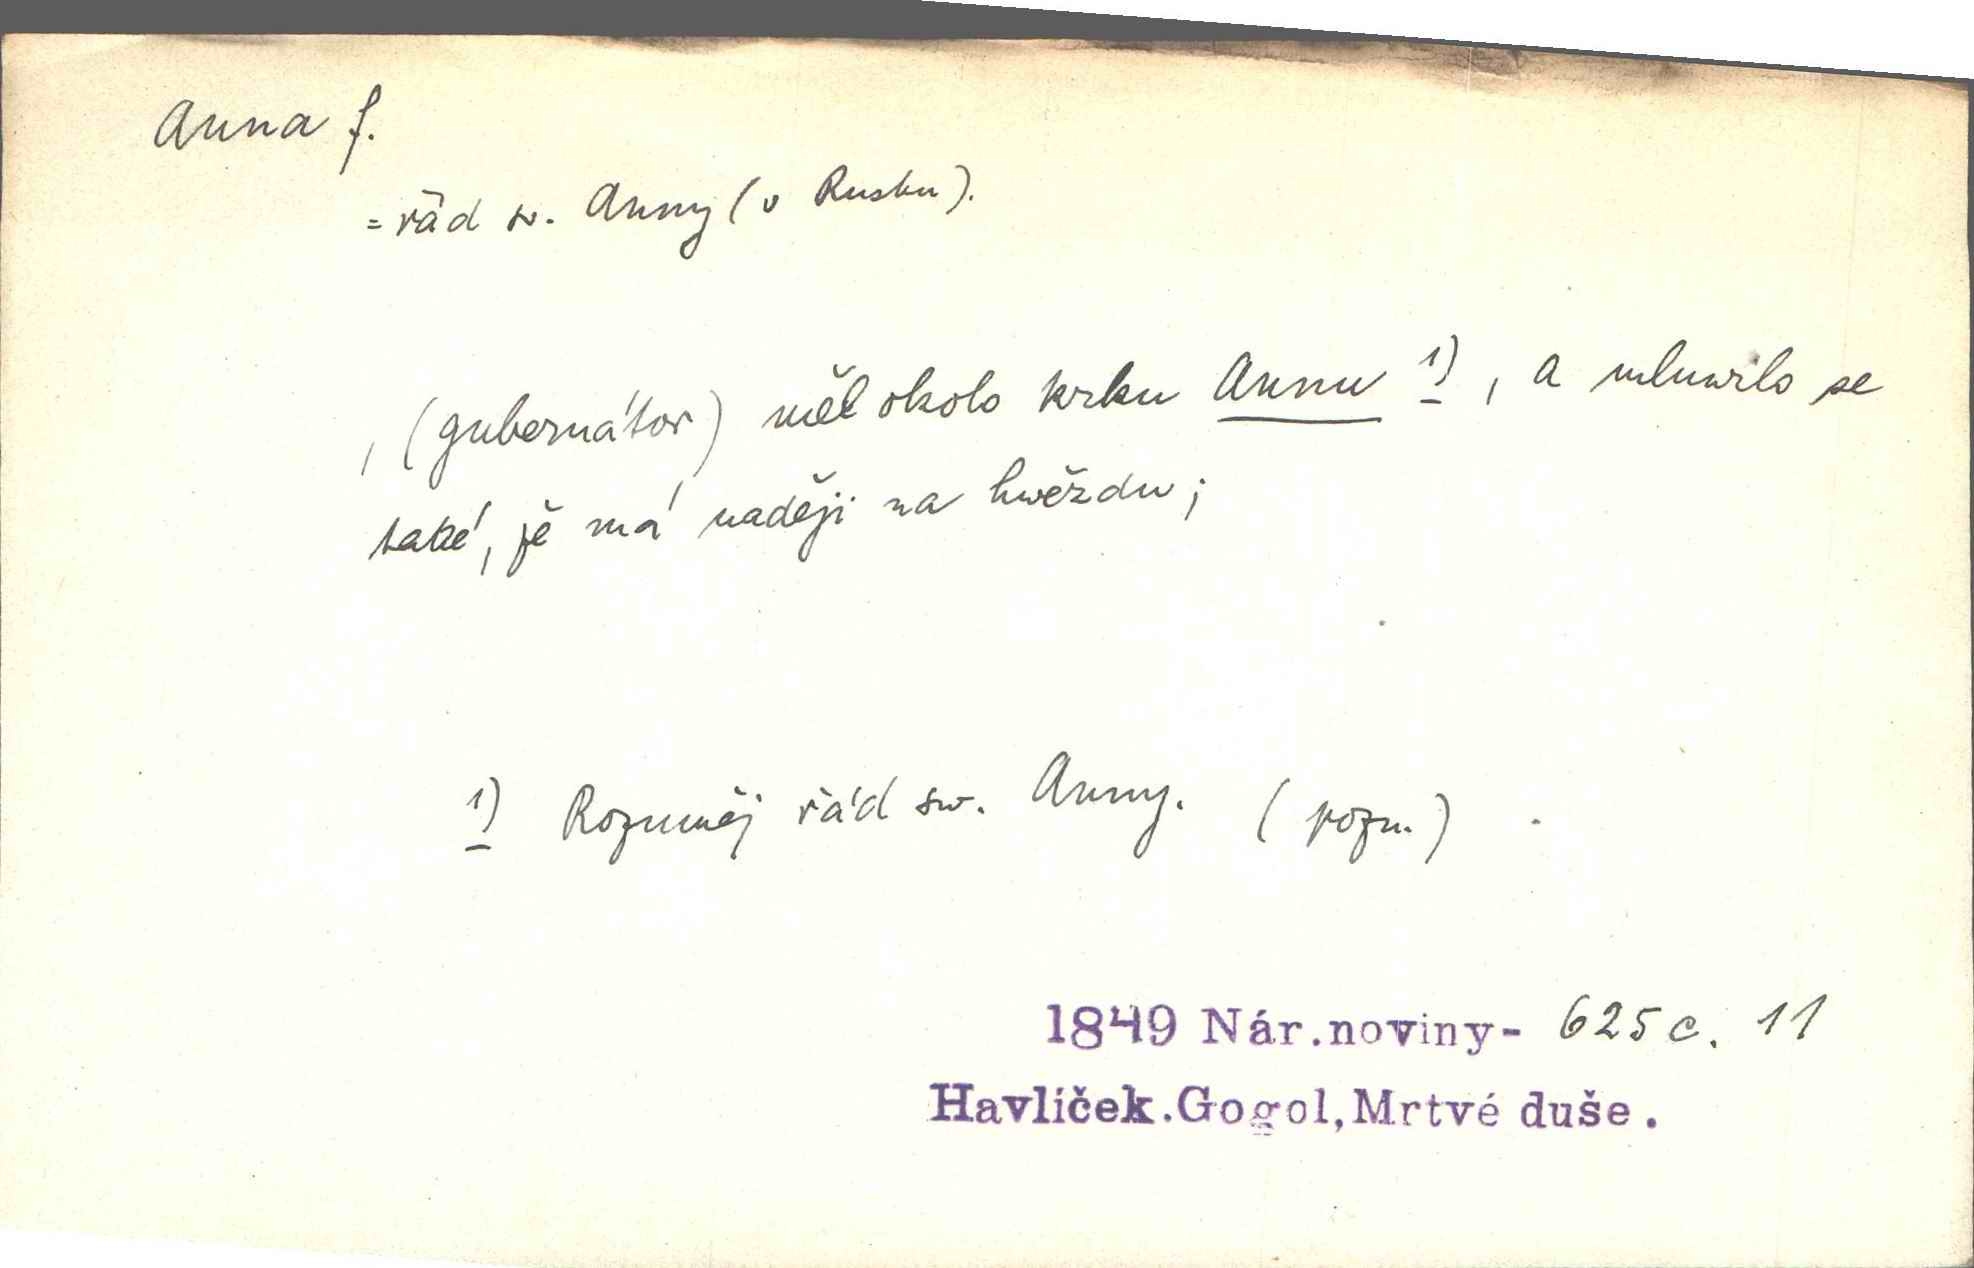 Anna f.
= řád sv. Anny (v Rusku).
, (gubernátor) měl okolo krku Annu 1), a mluwilo se
také, že má naději na hwězdu;
1) Rozuměj řád sw. Anny. (pozn.)
1849 Nár.noviny- 625 c. 11
Havlíček.Gogol,Mrtvé duše.